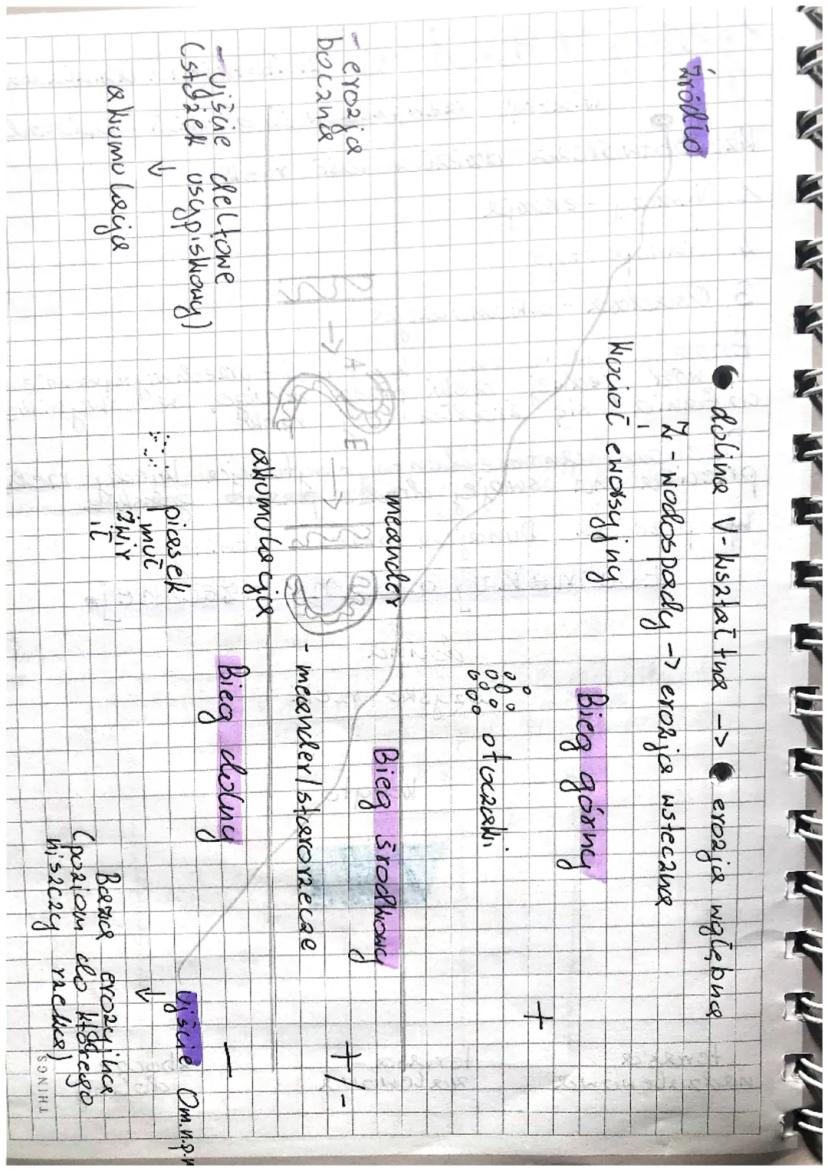 źródło
dolina V-kształtna -> erozja wgłębna
Ż - wodospady -> erozja wsteczna
kocioł eworsyjny
Bieg górny
+
otoczaki
meander
Bieg środkowy
+/-
- erozja
boczna
A
E
- meander/starorzecze
akumulacja
Bieg dolny
-
- Ujście deltowe
(stożek usypiskowy)
akumulacja
piasek
muł
żwir
ił
Ujście 0m.n.p.m
Baza erozyjna
(poziom do którego
niszczy rzeka)
THINGS